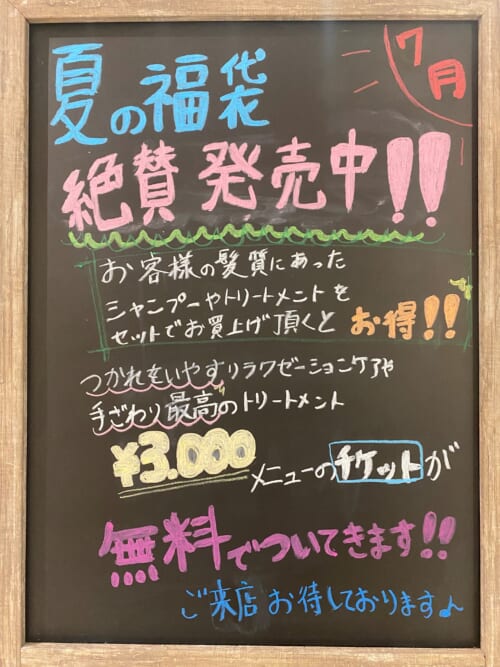 7月
夏の福袋
絶賛発売中!!
お客様の髪質にあった
シャンプーやトリートメントを
セットでお買上げ頂くと お得!!
つかれをいやすリラクゼーションケアや
手ざわり最高のトリートメント
¥3.000
メニューのチケットが
無料でついてきます!!
ご来店お待しております♪